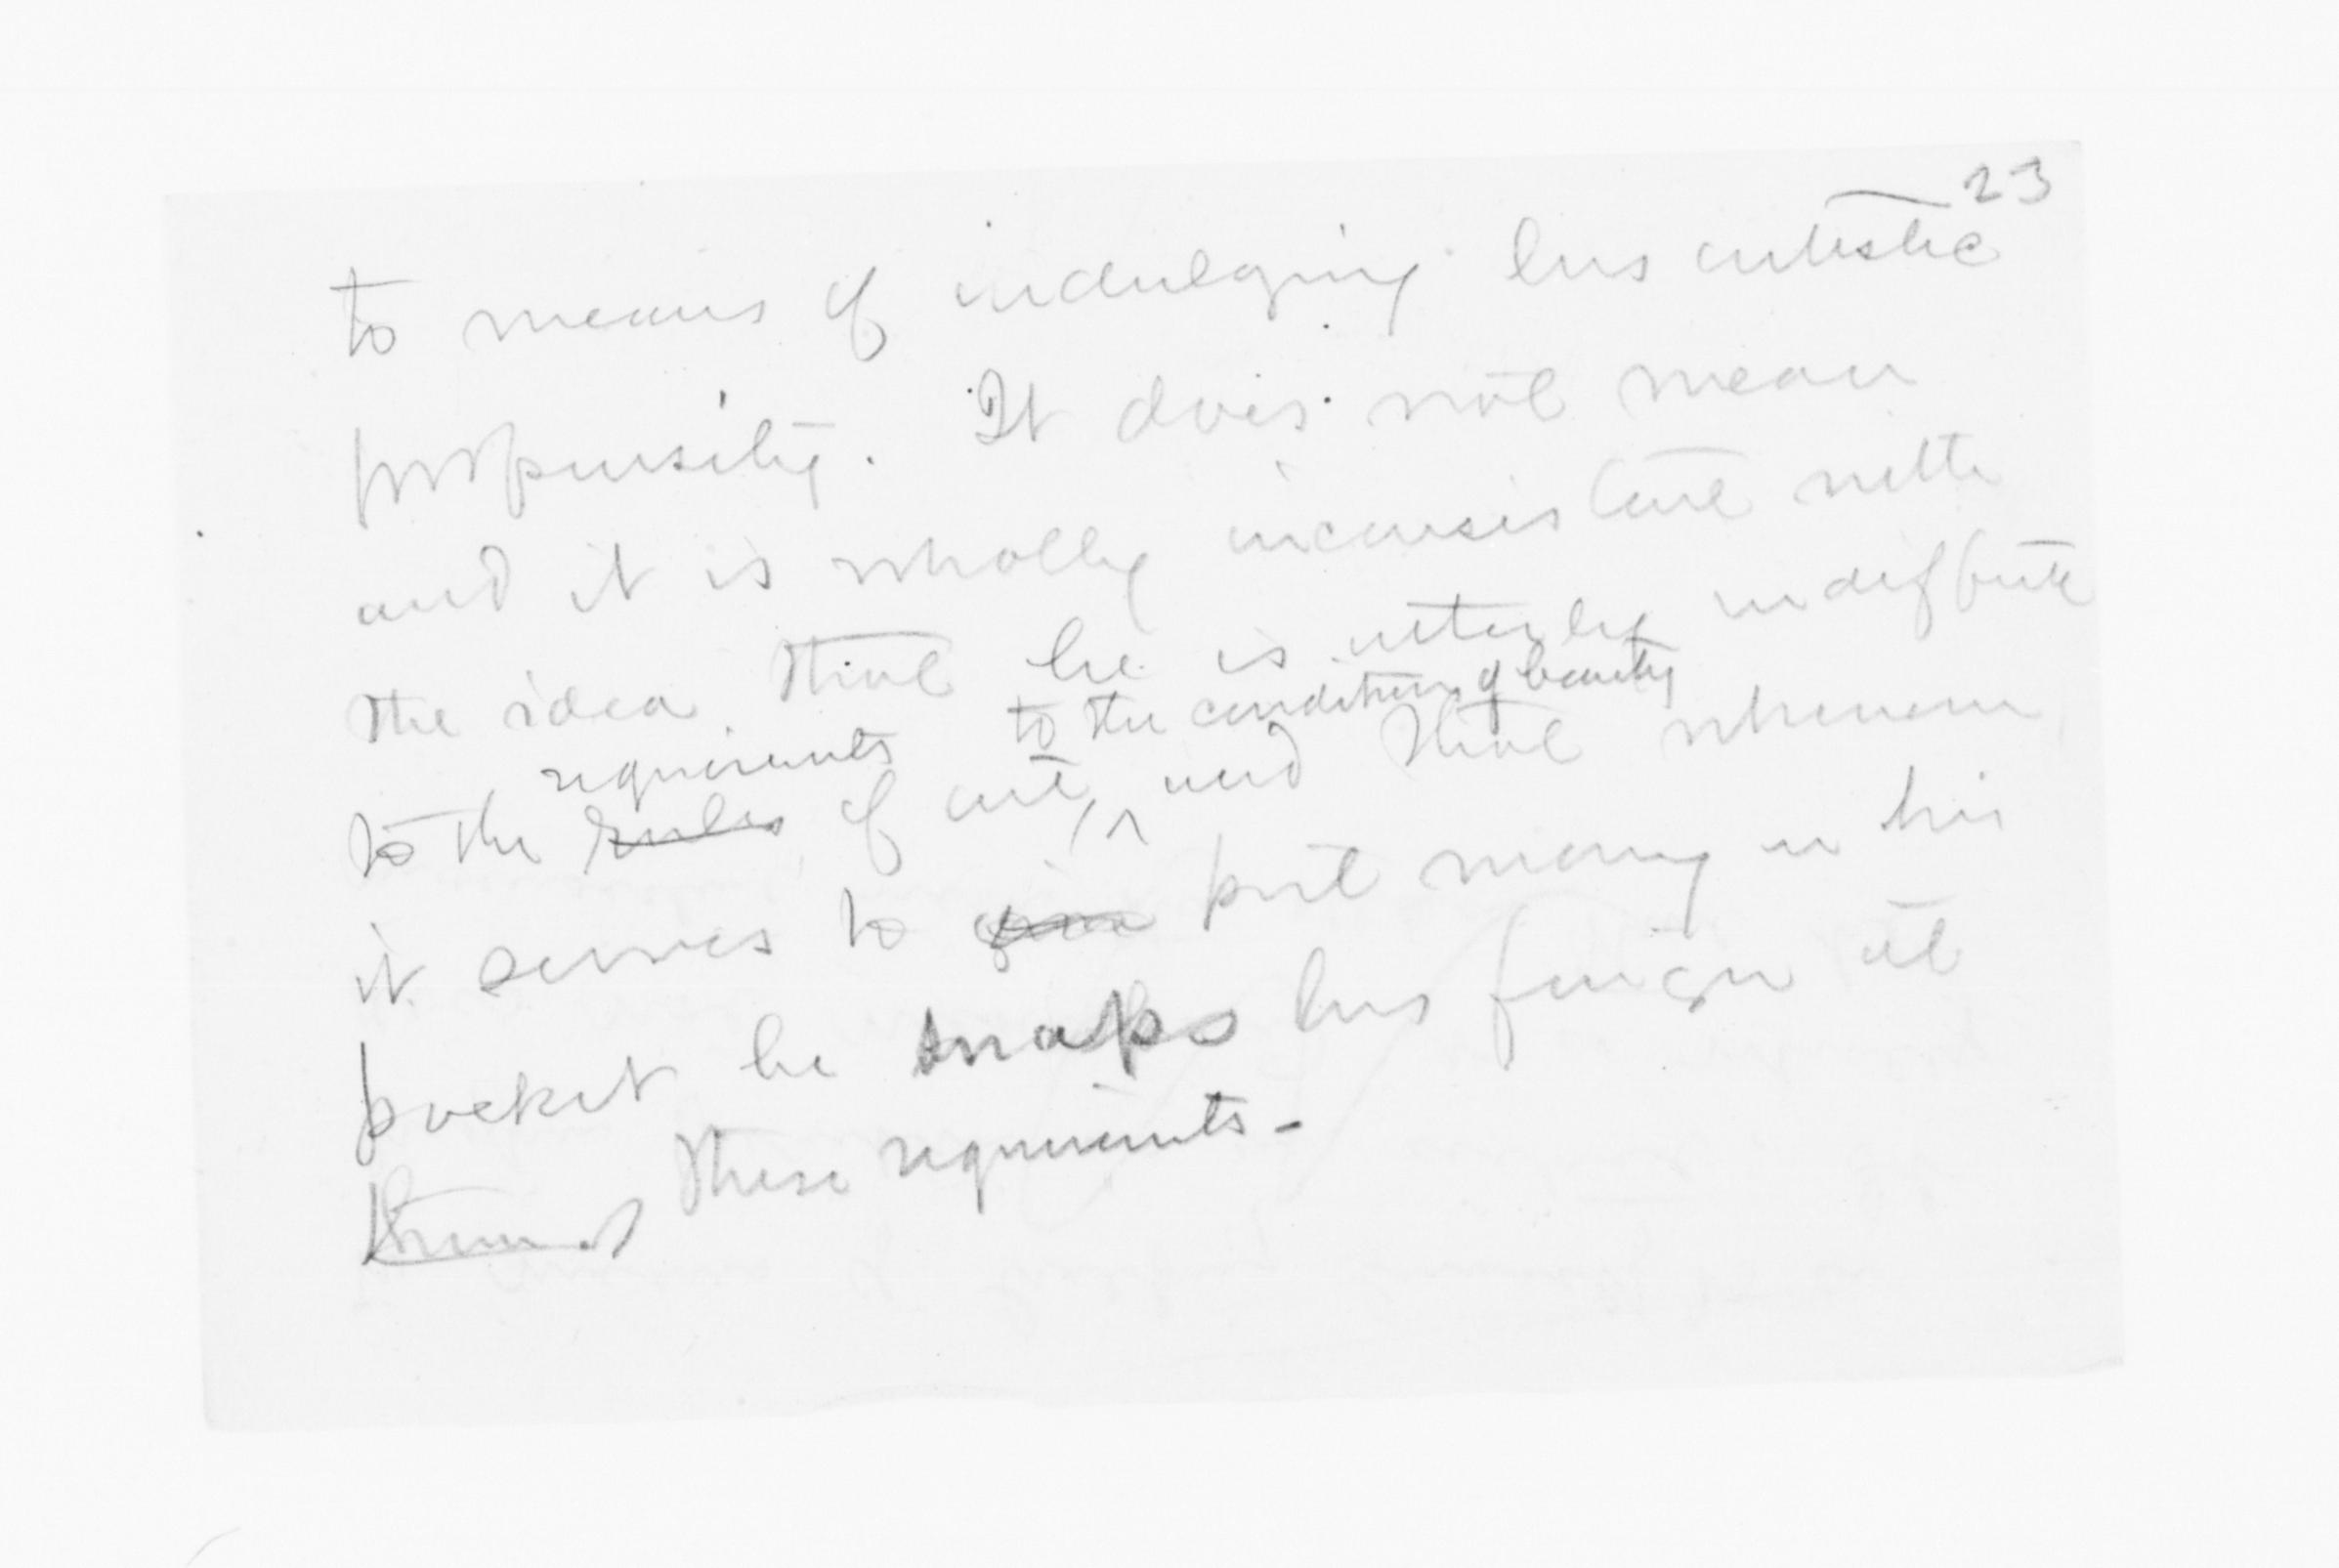 23
to means of indulging his artistic
propensity. It does not mean
and it is wholly inconsistent with
the idea that he is utterly indifferent
requirements to the conditions of beauty
to the rules of art, ^ and that whenever
it serves to give put money in his
pocket he snaps his finger at
them. these requirements -